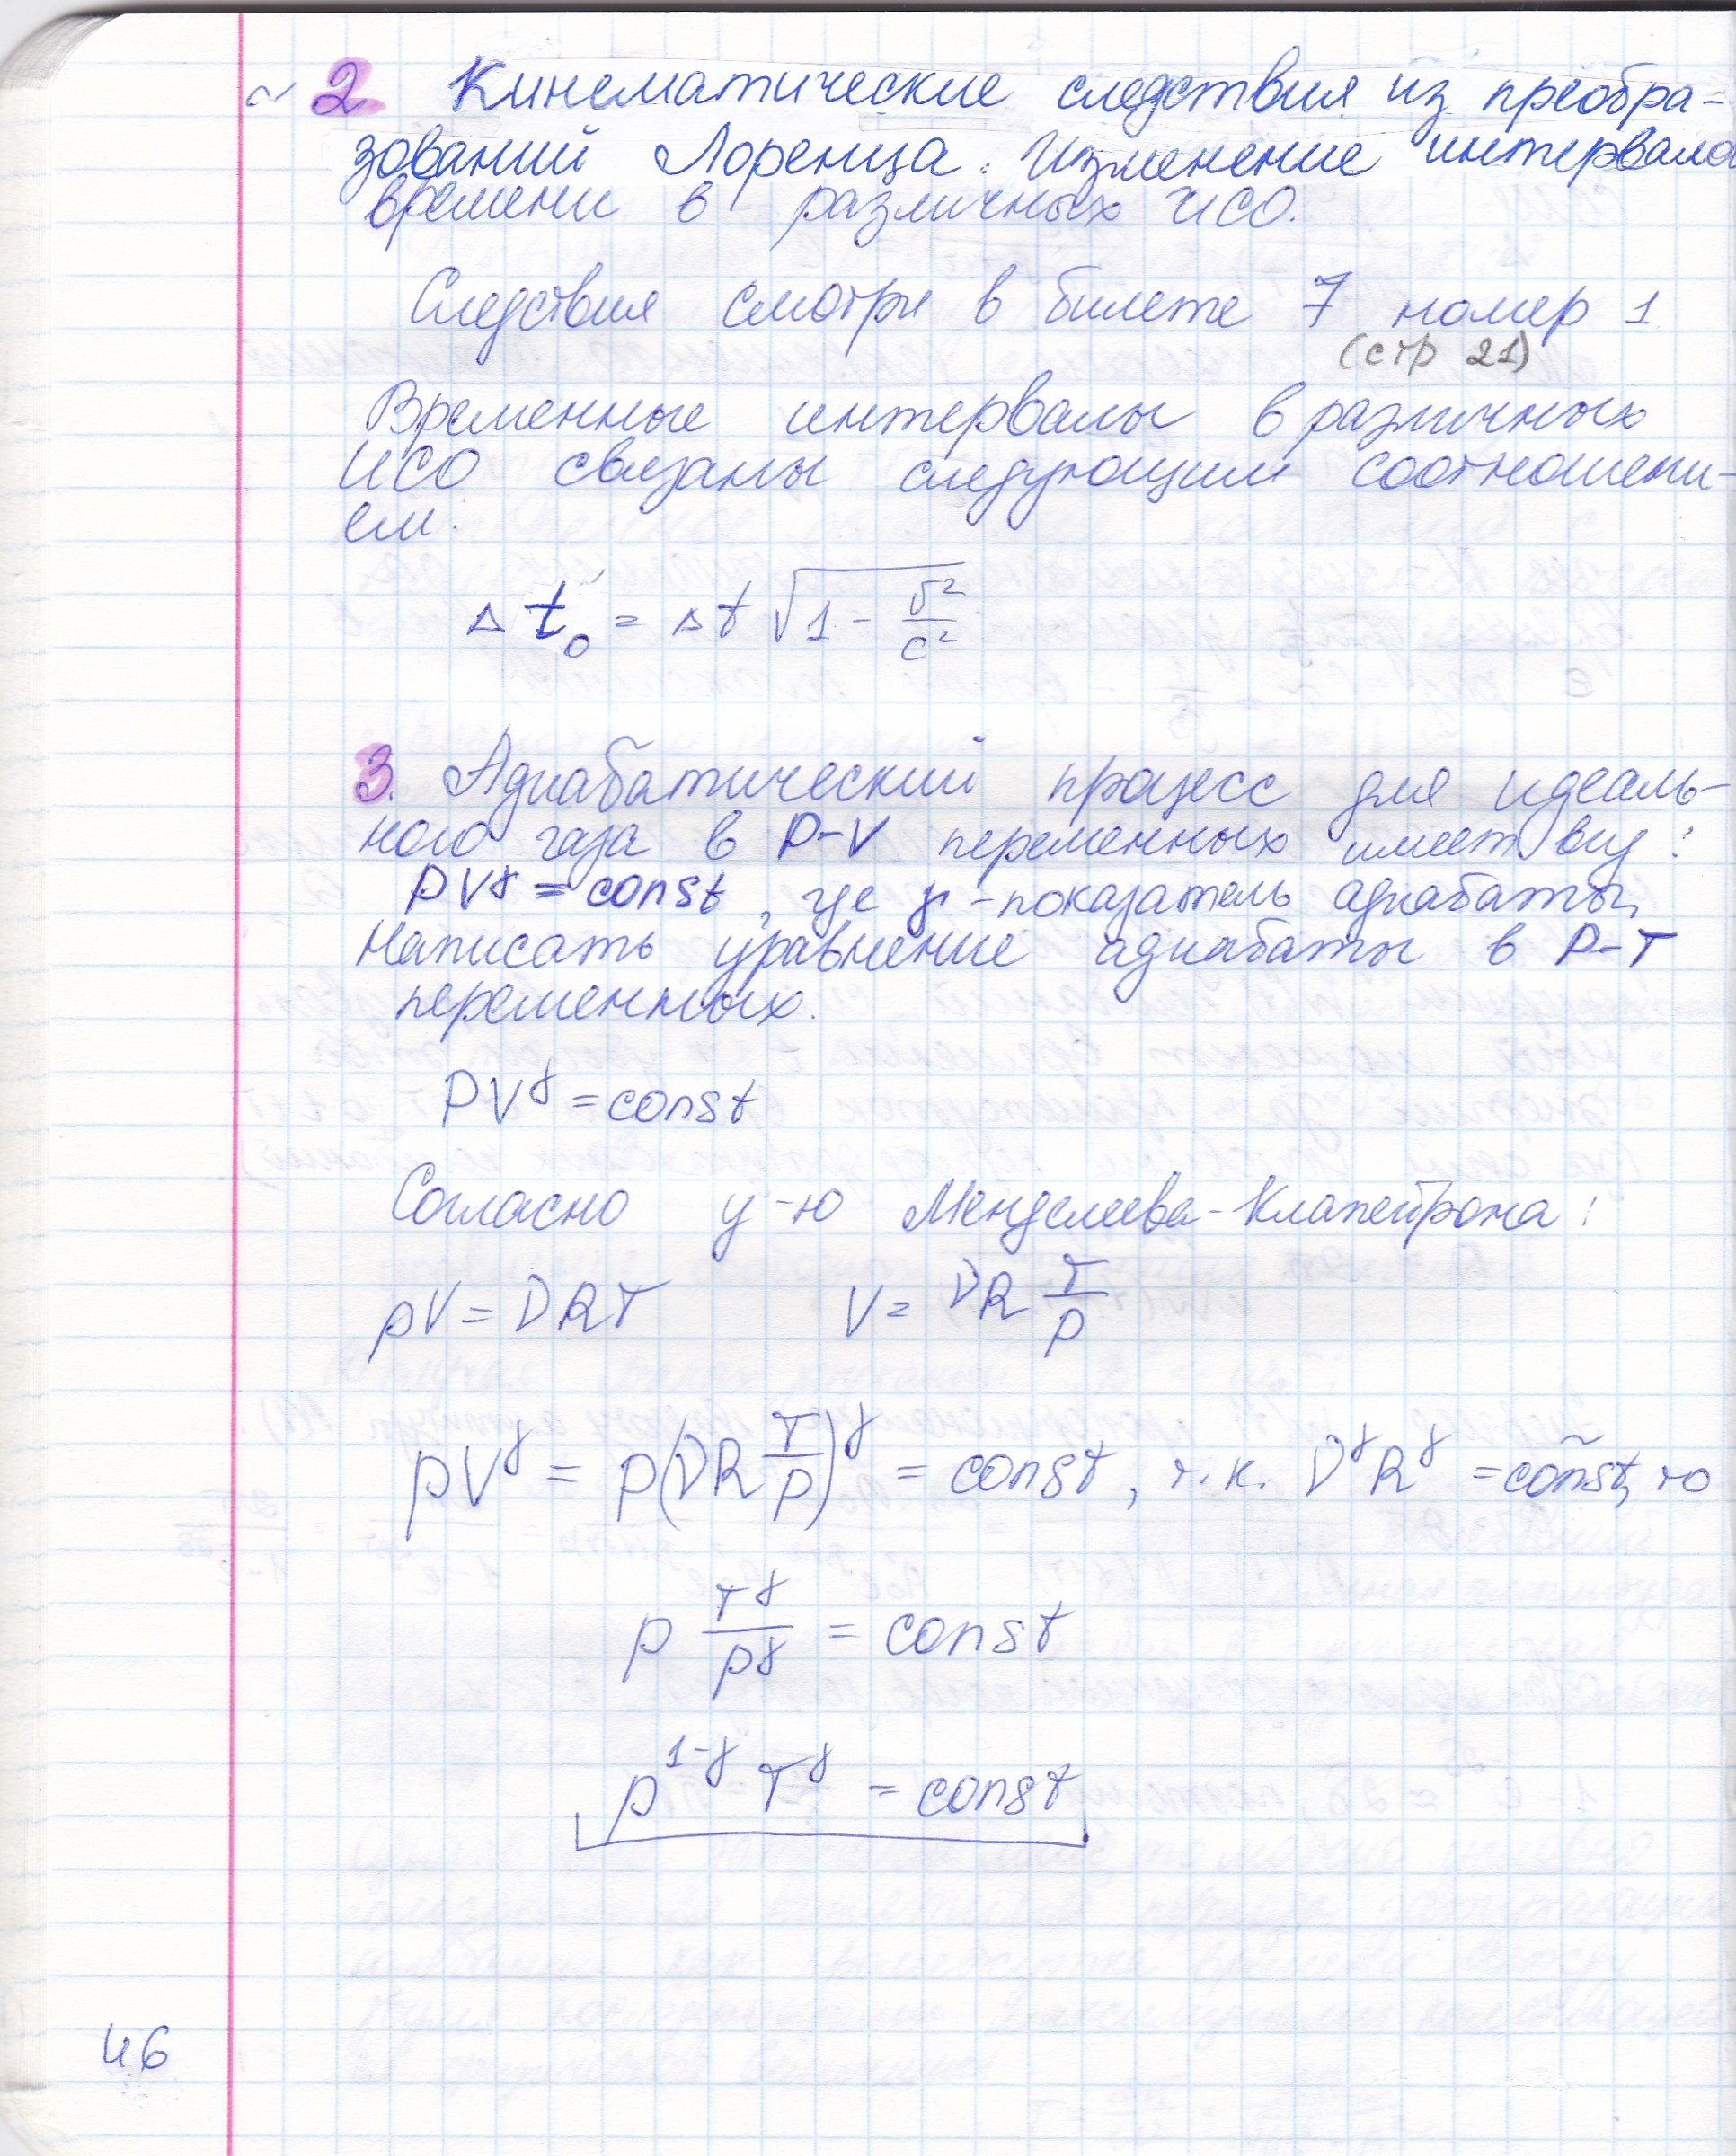 ~ 2 Кинематические следствия из преобра-
зований Лоренца. Изменение интервала
времени в различных ИСО.
Следствия смотри в билете 7 номер 1
(стр 21)
Временные интервалы в различных
ИСО связаны следующим соотношени-
ем.
Δ t₀ = Δt √(1 - v²/c²)
3. Адиабатический процесс для идеаль-
ного газа в P-V переменных имеет вид:
PVᵞ = const, где γ - показатель адиабаты,
Написать уравнение адиабаты в P-T
переменных.
PVᵞ = const
Согласно у-ю Менделеева-Клапейрона:
pV = νRT V = νR T/p
pVᵞ = p(νR T/p)ᵞ = const, т.к. νᵞRᵞ = co͠nst, то
p Tᵞ/pᵞ = const
p¹⁻ᵞ Tᵞ = const
46